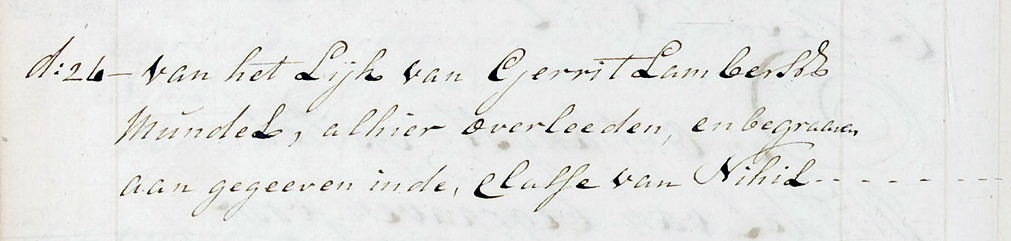 d: 26 - van het Lijk van Gerrit Lambersz
Mundel, alhier overleeden, en begraaven
aan gegeeven inde, Classe van Nihil - - - - - - -